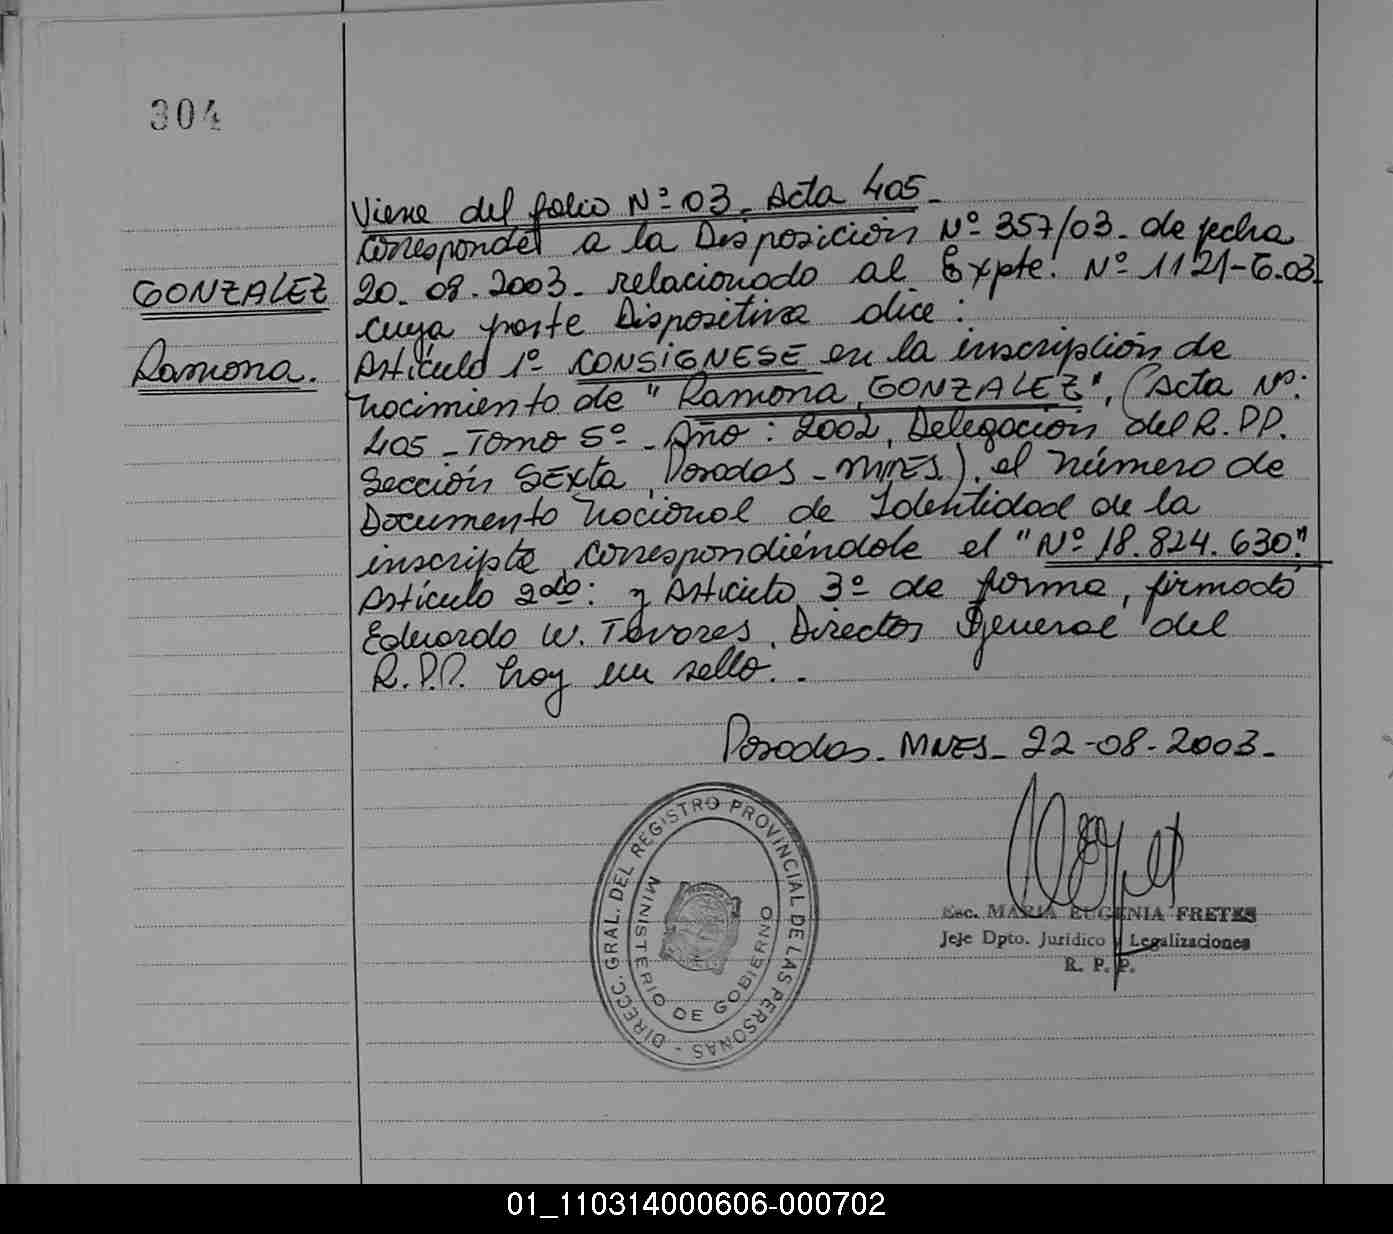 304
GONZALEZ
Ramona.
Viene del folio Nº 03. Acta 405.
Corresponde a la Disposición Nº 357/03. de fecha
20. 08. 2003. relacionado al Expte! Nº 1121-G.03.
cuya parte Dispositiva dice:
Artículo 1º CONSIGNESE en la inscripción de
nacimiento de "Ramona GONZALEZ", (Acta Nº:
405 - Tomo 5º - Año: 2002, Delegación del R.P.P.
Sección SExta, Posadas - MNES). el número de
Documento Nacional de Identidad de la
inscripta, correspondiéndole el "Nº 18.824.630."
Artículo 2do: y Artículo 3º de forma, firmado
Eduardo W. Tavares, Director General del
R.P.P. hay un sello..
Posadas. MNES. 22-08-2003.
DIRECC. GRAL. DEL REGISTRO PROVINCIAL DE LAS PERSONAS -
MINISTERIO DE GOBIERNO
Esc. MARIA EUGENIA FRETES
Jefe Dpto. Jurídico y Legalizaciones
R. P. P.
01_110314000606-000702